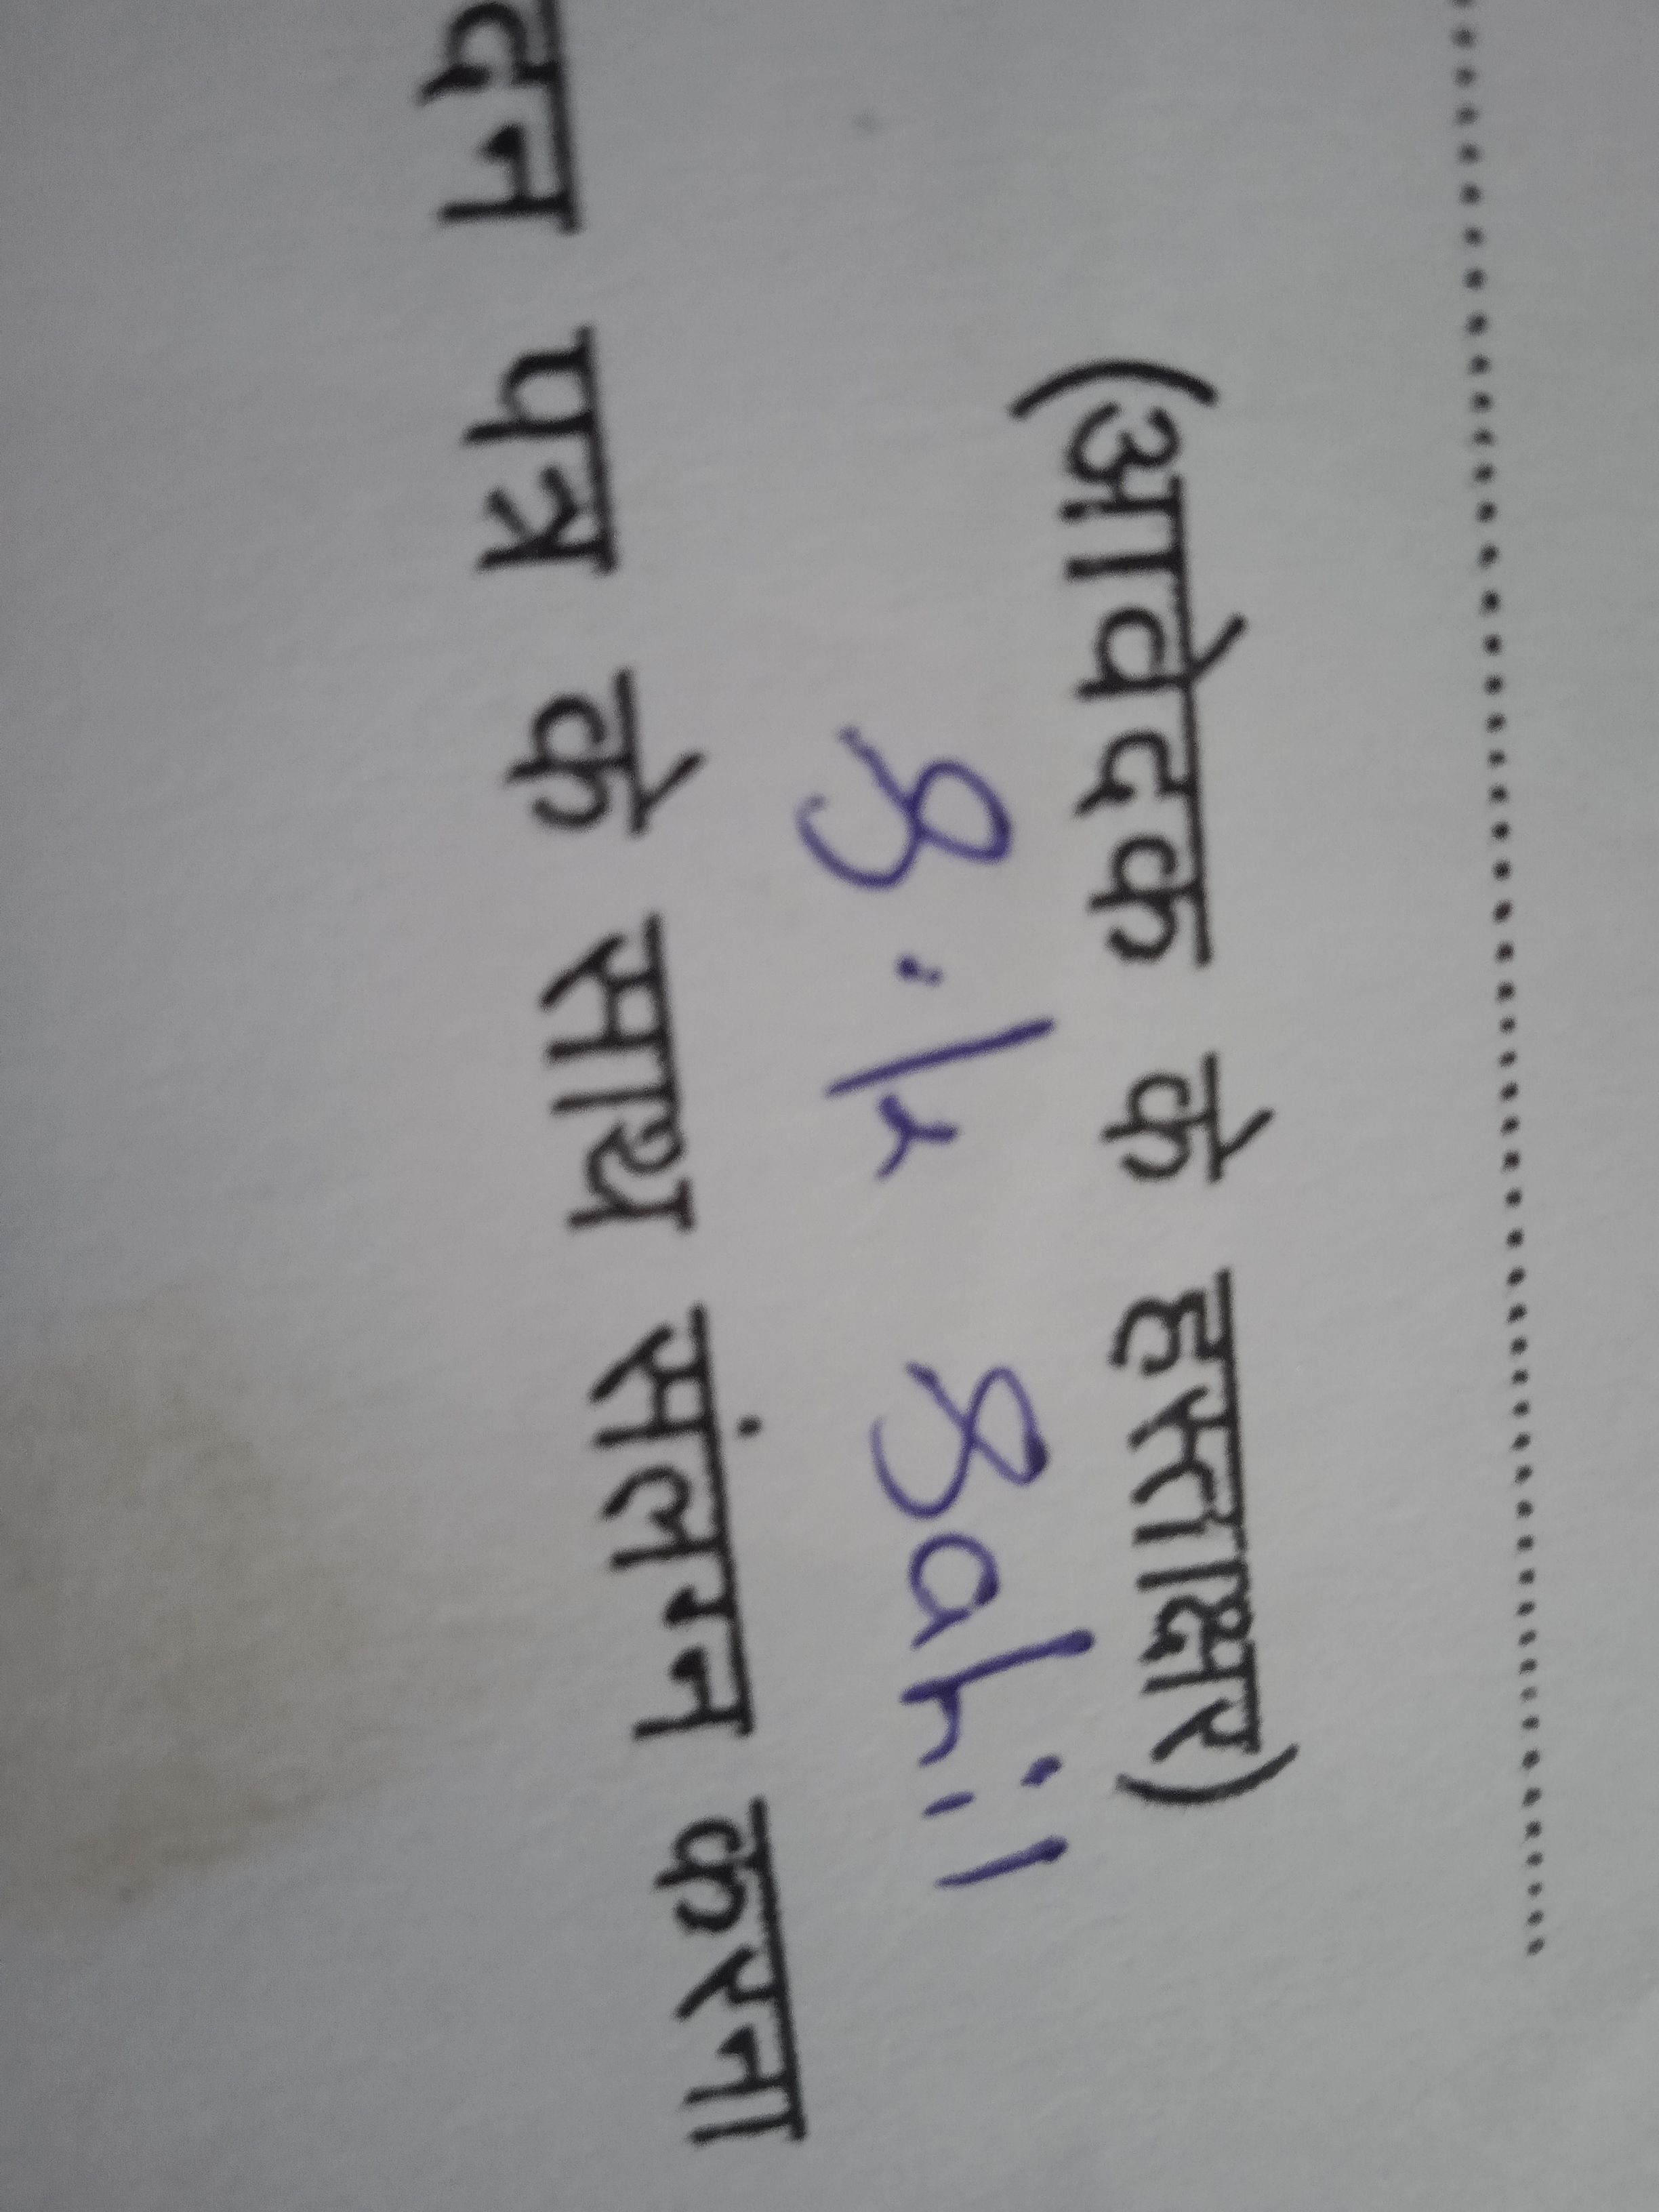 (आवेदक के हस्ताक्षर)
S.k Sahil
दन पत्र के साथ संलग्न करना